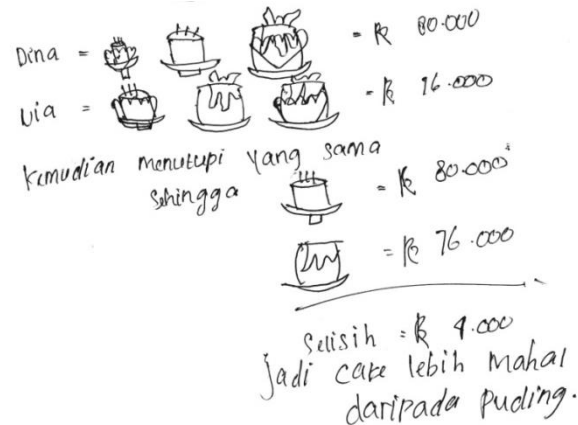 Dina = = Rp 80.000
Via = = Rp 76.000
Kemudian menutupi yang sama
Sehingga
= Rp 80.000
= Rp 76.000
Selisih = Rp 4.000
Jadi cake lebih mahal
daripada puding.